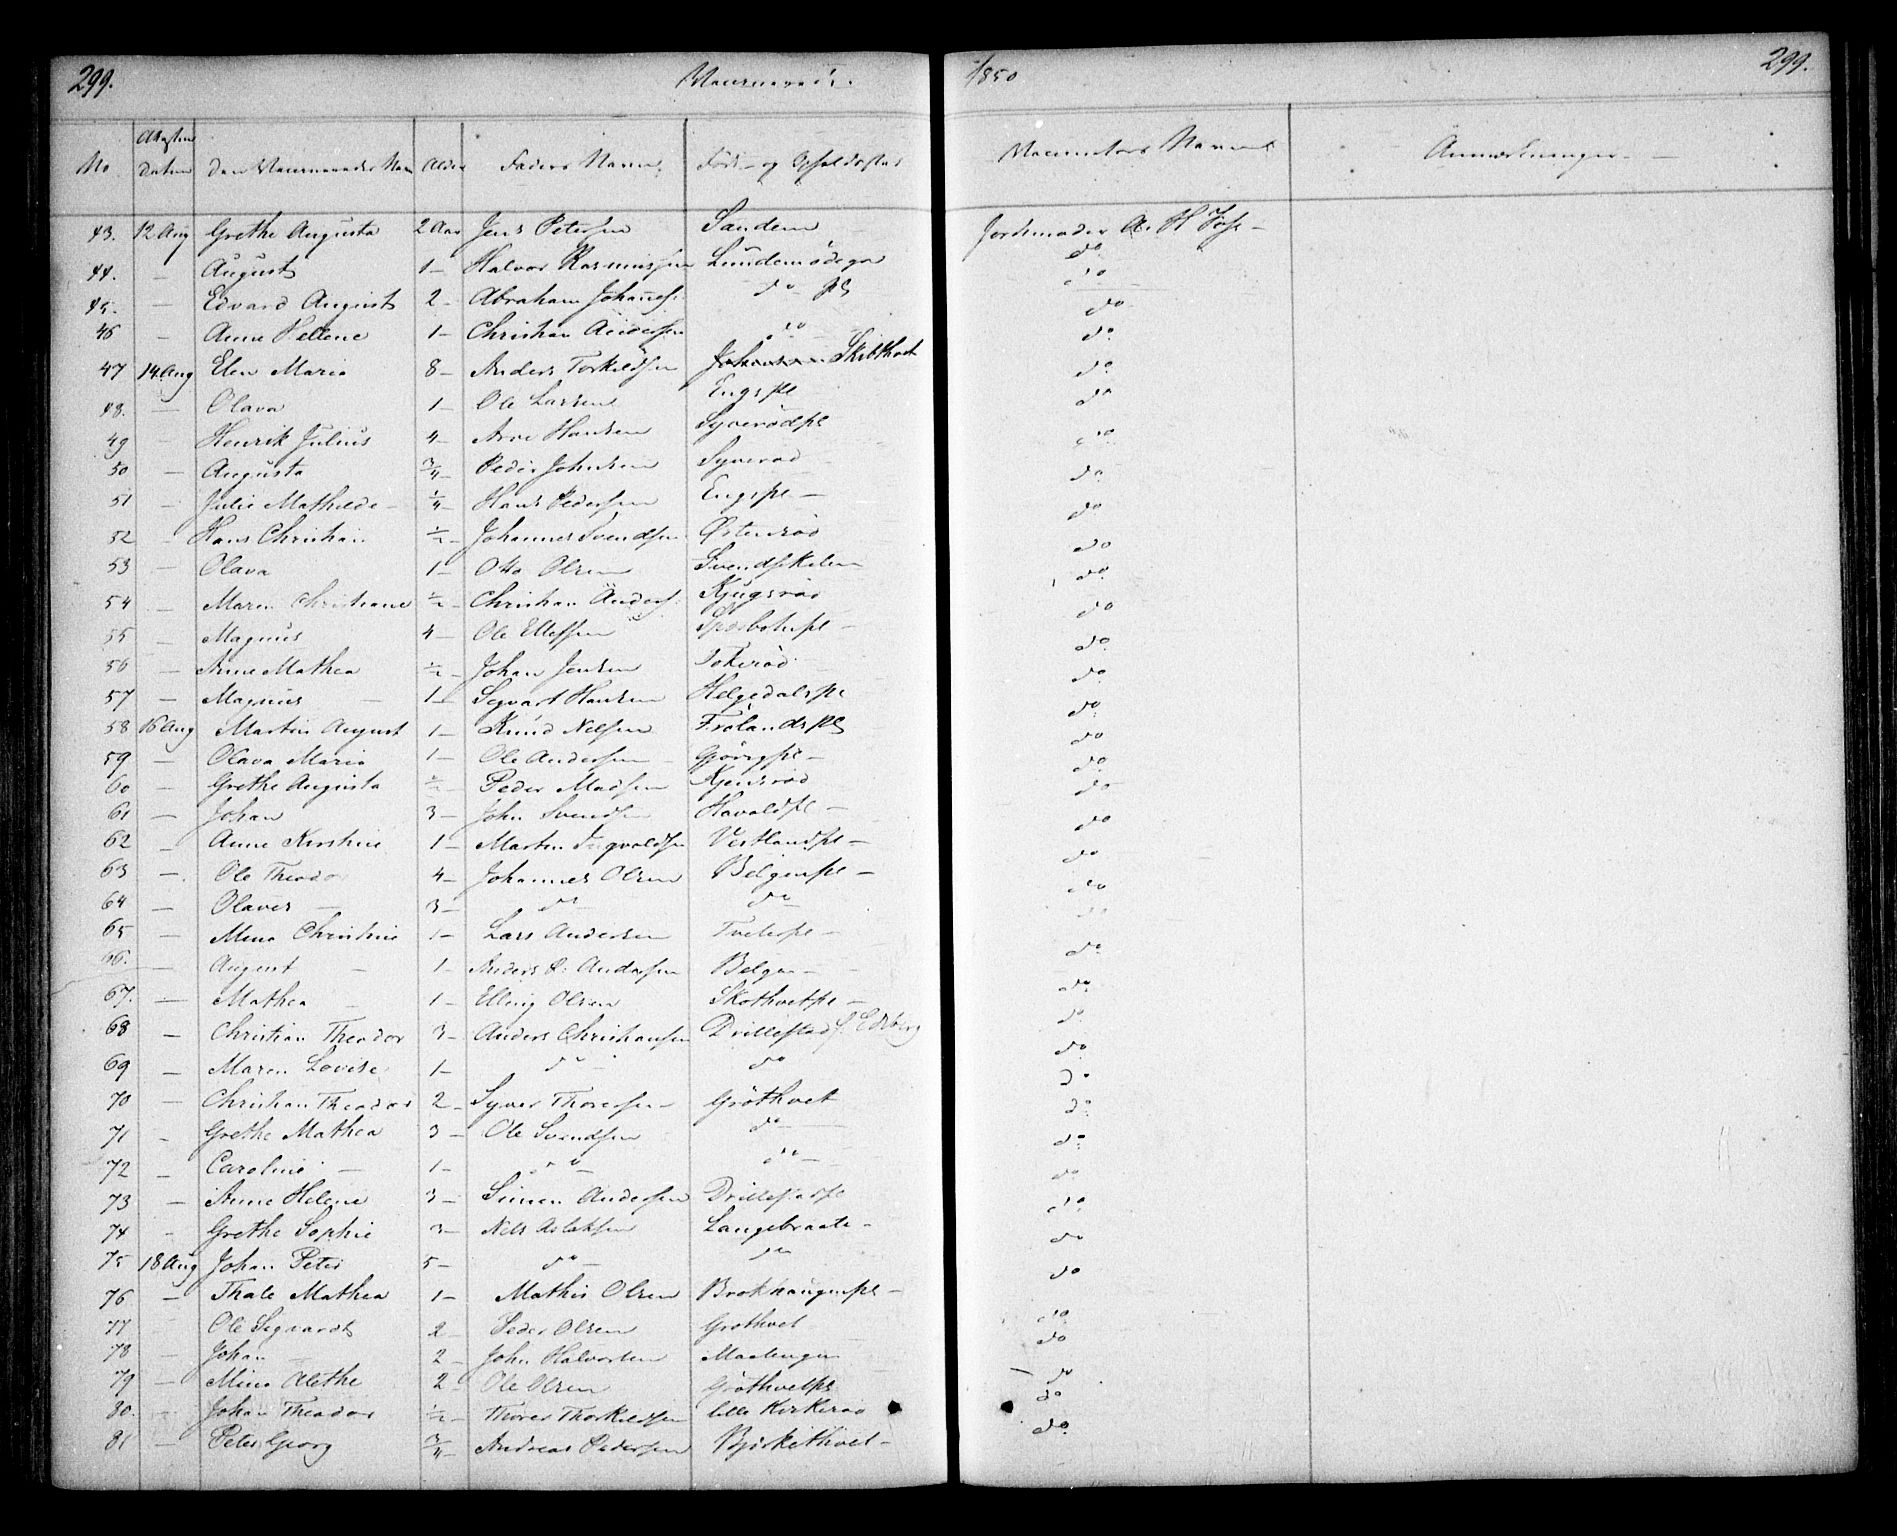 299. Vaccinerede 1850 299.
No Attestens Datum Den Vaccineredes Navn Alder Faders Navn Føde- og Opholdssted Vaccinators Navn Anmærkninger
43. 12 Aug Grethe Augusta 2 Aar Jens Petersen Sandem Jordemoder A. H.
44. — August 1 — Halvor Rasmussen do
45. — Edvard August 2 — Abraham Johannes. do pl do
46 — Anne Hellene 1 — Christian Andersen do do
47 14 Aug Elen Maria 8 — Anders Torkildsen Skibthvet do
48. — Olava 1 — Ole Larsen Engspl do
49 — Henrik Julius 4 — Arve Hansen Syverødpl do
50 — Augusta 3/4 — Peder Johnsen Syverød do
51 — Julie Mathilde — 1/4 — Hans Pedersen Engspl — do
52 — Hans Christian 1/2 — Johannes Svendsen Østenrød do
53 — Olava 1 — Otto Olsen do
54 — Maren Christiane 1/2 — Christian Anders. Kjugsrød do
55 — Magnus 4 — Ole Ellefsen do
56 — Anne Mathea 1/2 — Johan Jensen Tokerød do
57 — Magnus — 1 — Segvart Hansen Helgedalspl do
58 16 Aug Martin August 1 — Knud Nelsen Frølandspl do
59 — Olava Maria 1 — Ole Andersen do
60 — Grethe Augusta 1/2 — Peder Madsen Kjensrød do
61 — Johan 3 — John Svendsen Havaldpl — do
62 — Anne Kirstine 1 — Martin Ingvaldsen Vestlandspl — do
63 — Ole Theodor 4 — Johannes Olsen Belgenpl — do
64 — Olaves — 3 — do do do
65 — Mina Christine 1 — Lars Andersen Tvetepl — do
66. — August — 1 — Anders P. Andersen Belgen — do
67. — Mathea — 1 — Elling Olsen Skothvetpl — do
68 — Christian Theodor 3 — Anders Christiansen Drillestad do
69 — Maren Lovise 1 — do do do
70 — Christian Theodor 2 — Syver Thoresen — Gröthvet do
71 — Grethe Mathea 3 — Ole Svendsen do — do
72 — Caroline — 1 — do — do — do
73 — Anne Helene 3 — Simen Andersen Drillestadpl do
74 — Grethe Sophie 3 — Nels Aslaksen Langebraate — do
75 18 Aug Johan Peter 5 — do — do do
76 — Thale Mathea 1 — Mathis Olsen Brokhaugenpl — do
77 — Ole Segvardt 2 — Peder Olsen Gröthvet do
78 — Johan 2 — John Halvorsen do
79 — Mina Alethe 2 — Ole Olsen Gröthvetpl do
80. — Johan Theodor 1/2 — Thorer Thorkildsen lille Kirkerød do
81 — Peter Georg 3/4 — Andreas Pedersen Bjirkethvet — do